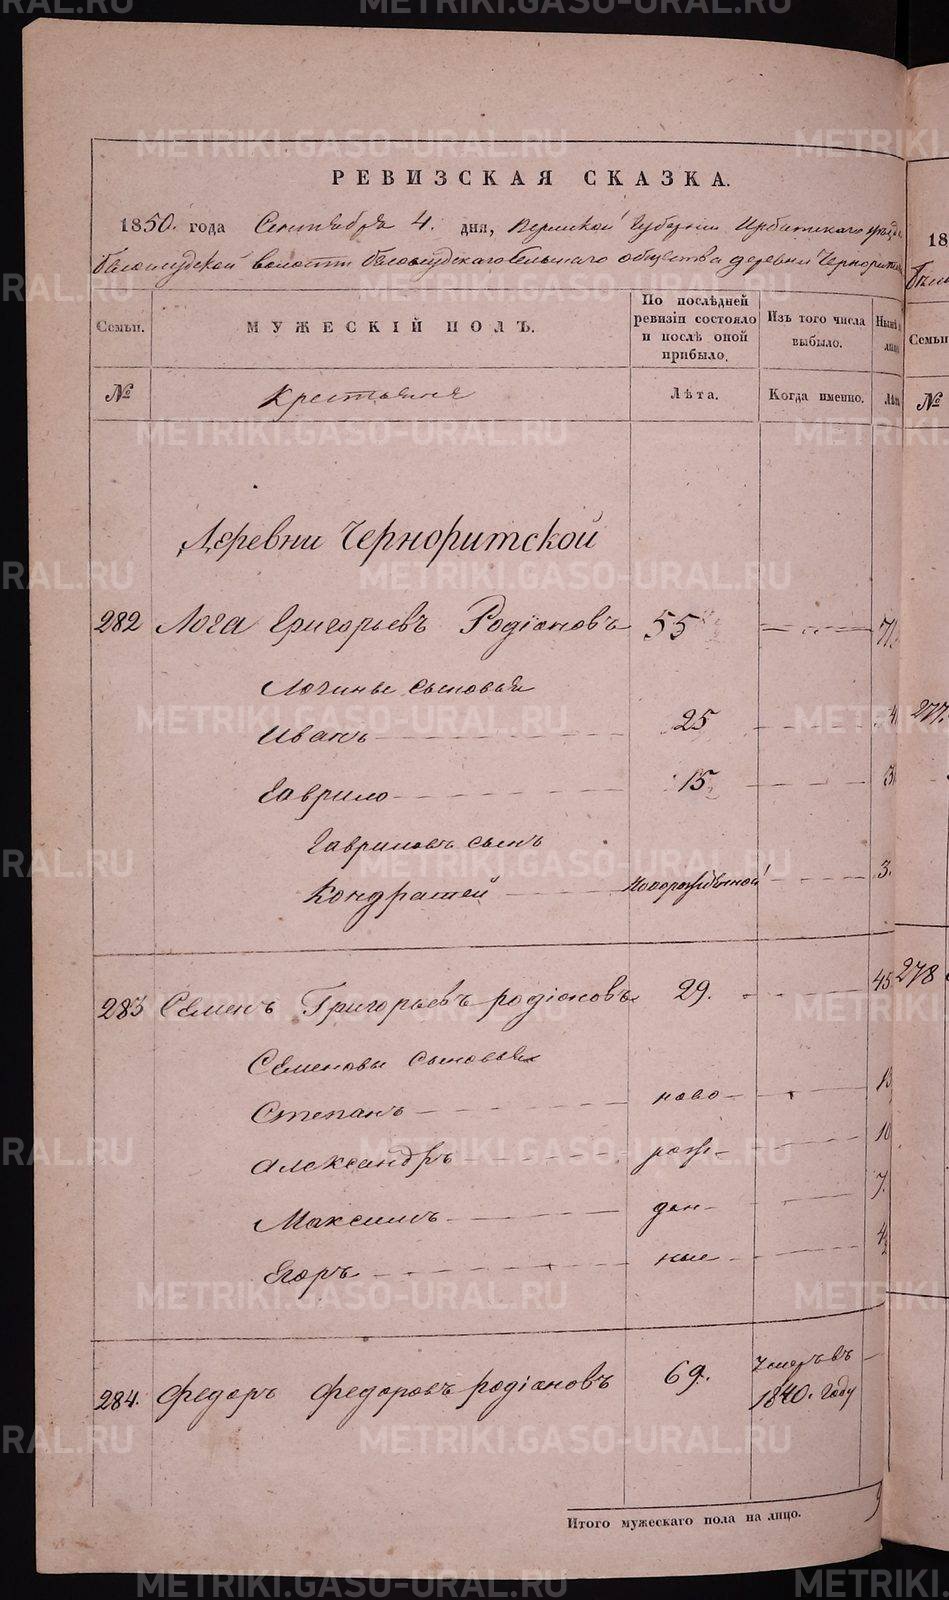 РЕВИЗСКАЯ СКАЗКА.
1850. года Сентября 4. дня, Пермской Губернии Ирбитскаго уѣзда
Бѣлослудской волости бѣлослудскаго сельскаго общества деревни Чернорит
Семьи.
МУЖЕСКІЙ ПОЛЪ.
По послѣдней ревизіи состояло и послѣ оной прибыло.
Изъ того числа выбыло.
№
Крестьяне
Лѣта.
Когда именно.
Деревни Черноритской
282 Лога Григорьевъ Родіоновъ 55 71
Логины сыновья
Иванъ 25
Гаврило 15
Гавриловъ сынъ
Кондратей Новорожденной 3.
283 Семенъ Григорьевъ родіоновъ 29. 45
Семеновы сыновья
Степанъ ново
Александръ рож- 10
Максимъ ден- 7.
Егоръ ные
284. Федоръ Федоровъ родіоновъ 69. Умеръ въ
1840. Году
Итого мужескаго пола на лицо. 9
18
Семьи
№
277.
278
METRIKI.GASO-URAL.RU